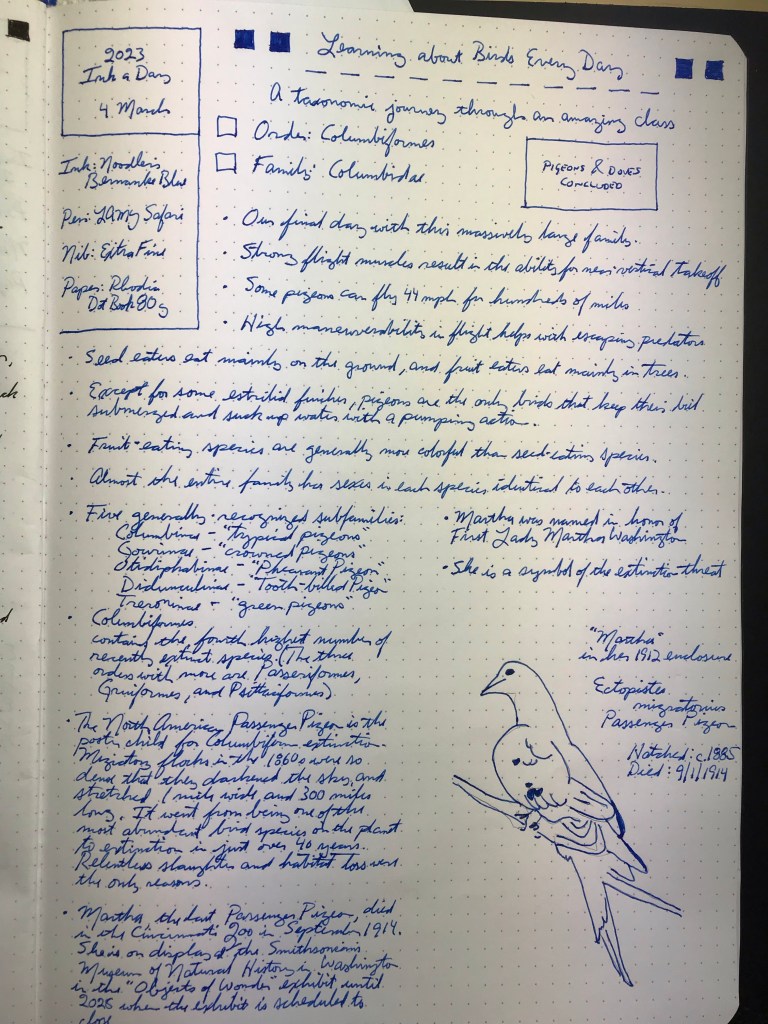 2023
Ink a Day
4 March
Ink: Noodler's
Bernanke Blue
Pen: LAMY Safari
Nib: Extra Fine
Paper: Rhodia
Dot Book 80g
Learning about Birds Every Day
A taxonomic journey through an amazing class
Order: Columbiformes
Family: Columbidae
PIGEONS & DOVES
CONCLUDED
• Our final day with this massively large family.
• Strong flight muscles result in the ability for near-vertical takeoff
• Some pigeons can fly 44 mph for hundreds of miles
• High maneuverability in flight helps with escaping predators
• Seed eaters eat mainly on the ground, and fruit eaters eat mainly in trees.
• Except for some estrildid finches, pigeons are the only birds that keep their bill
submerged and suck up water with a pumping action.
• Fruit-eating species are generally more colorful than seed-eating species.
• Almost the entire family has sexes in each species identical to each other.
• Five generally recognized subfamilies:
Columbinae - "typical pigeons"
Gourinae - "crowned pigeons"
Otidiphabinae - "Pheasant Pigeon"
Didunculinae - "Tooth-billed Pigeon"
Treroninae - "green pigeons"
• Columbiformes
contains the fourth highest number of
recently extinct species. (The three
orders with more are Passeriformes,
Gruiformes, and Psittaciformes).
• The North American Passenger Pigeon is the
poster child for Columbiform extinction.
Migratory flocks in the 1860s were so
dense that they darkened the sky, and
stretched 1 mile wide and 300 miles
long. It went from being one of the
most abundant bird species on the planet
to extinction in just over 40 years.
Relentless slaughter and habitat loss were
the only reasons.
• Martha, the last Passenger Pigeon, died
in the Cincinnati Zoo in September 1914.
She is on display at the Smithsonian's
Museum of Natural History in Washington
in the "Objects of Wonder" exhibit until
2025 when the exhibit is scheduled to
close
• Martha was named in honor of
First Lady Martha Washington
• She is a symbol of the extinction threat
"Martha"
in her 1912 enclosure
Ectopistes
migratorius
Passenger Pigeon
Hatched: c.1885
Died: 9/1/1914